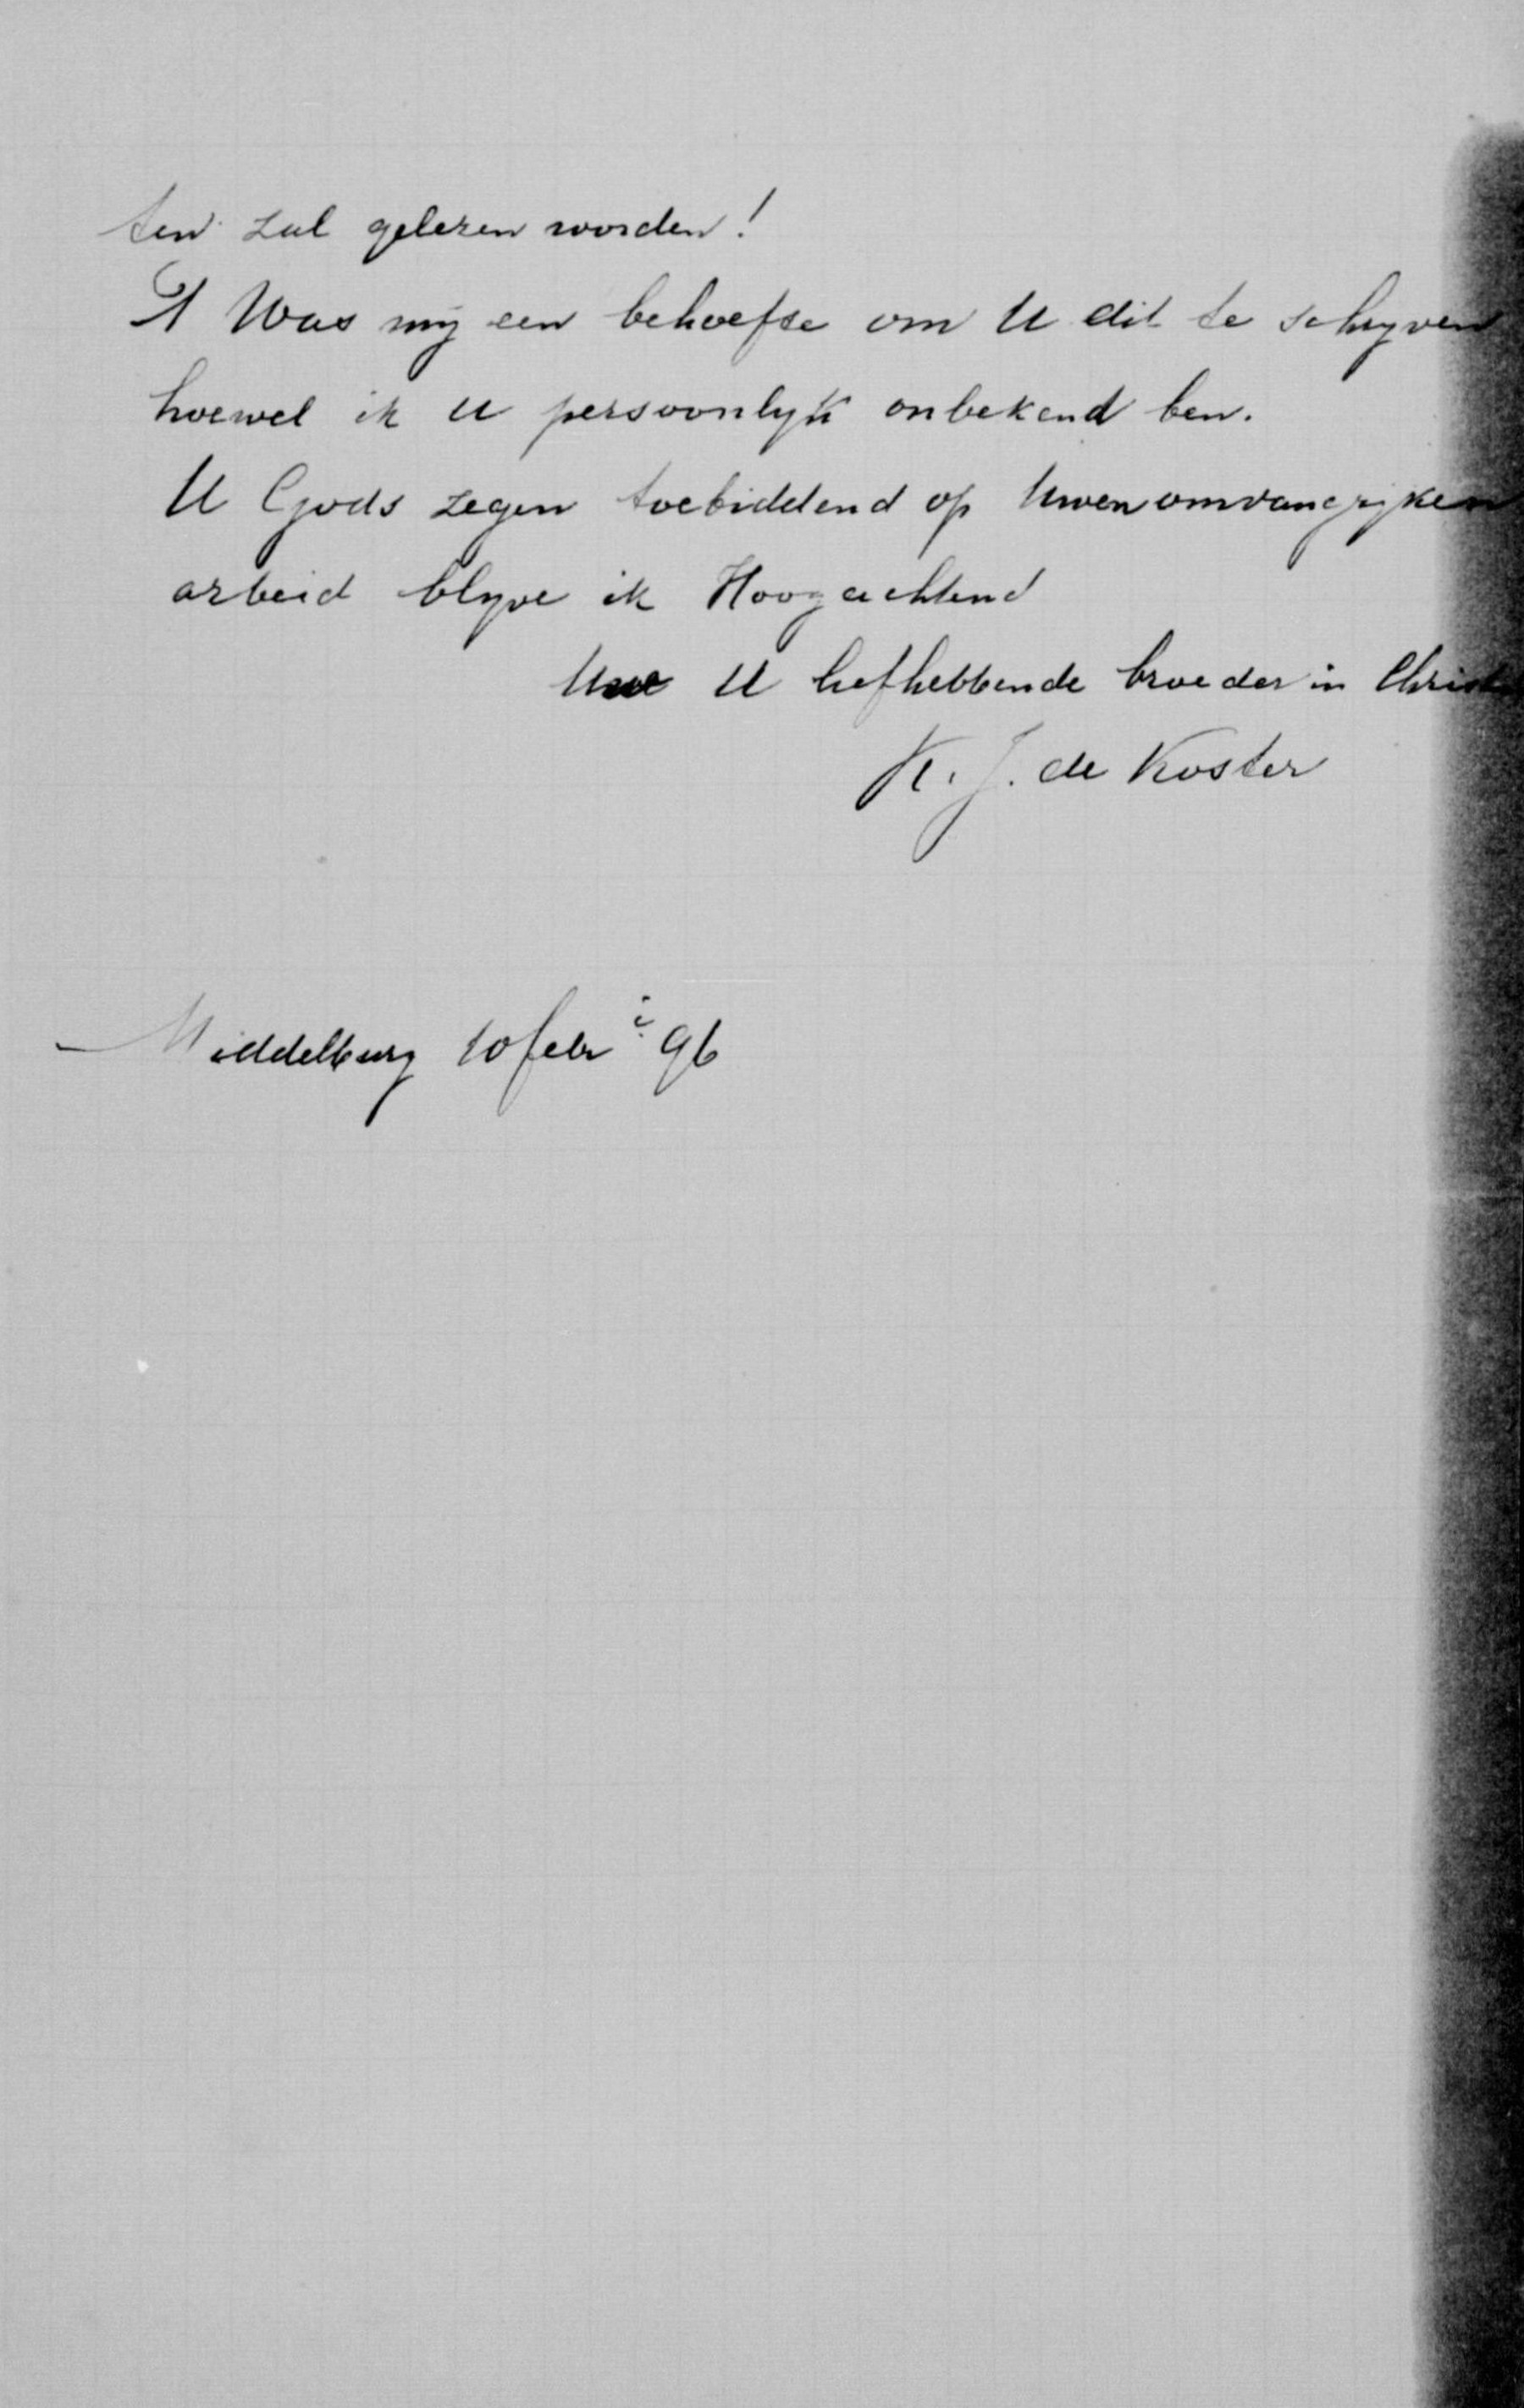 ten zal gelezen worden!
'T Was mij een behoefte om U dit te schrijven
hoewel ik U persoonlijk onbekend ben.
U Gods zegen toebiddend op Uwen omvangrijken
arbeid blijve ik Hoogachtend
Uwe U liefhebbende broeder in Christ
K. J. de Koster
Middelburg 10 febr 96